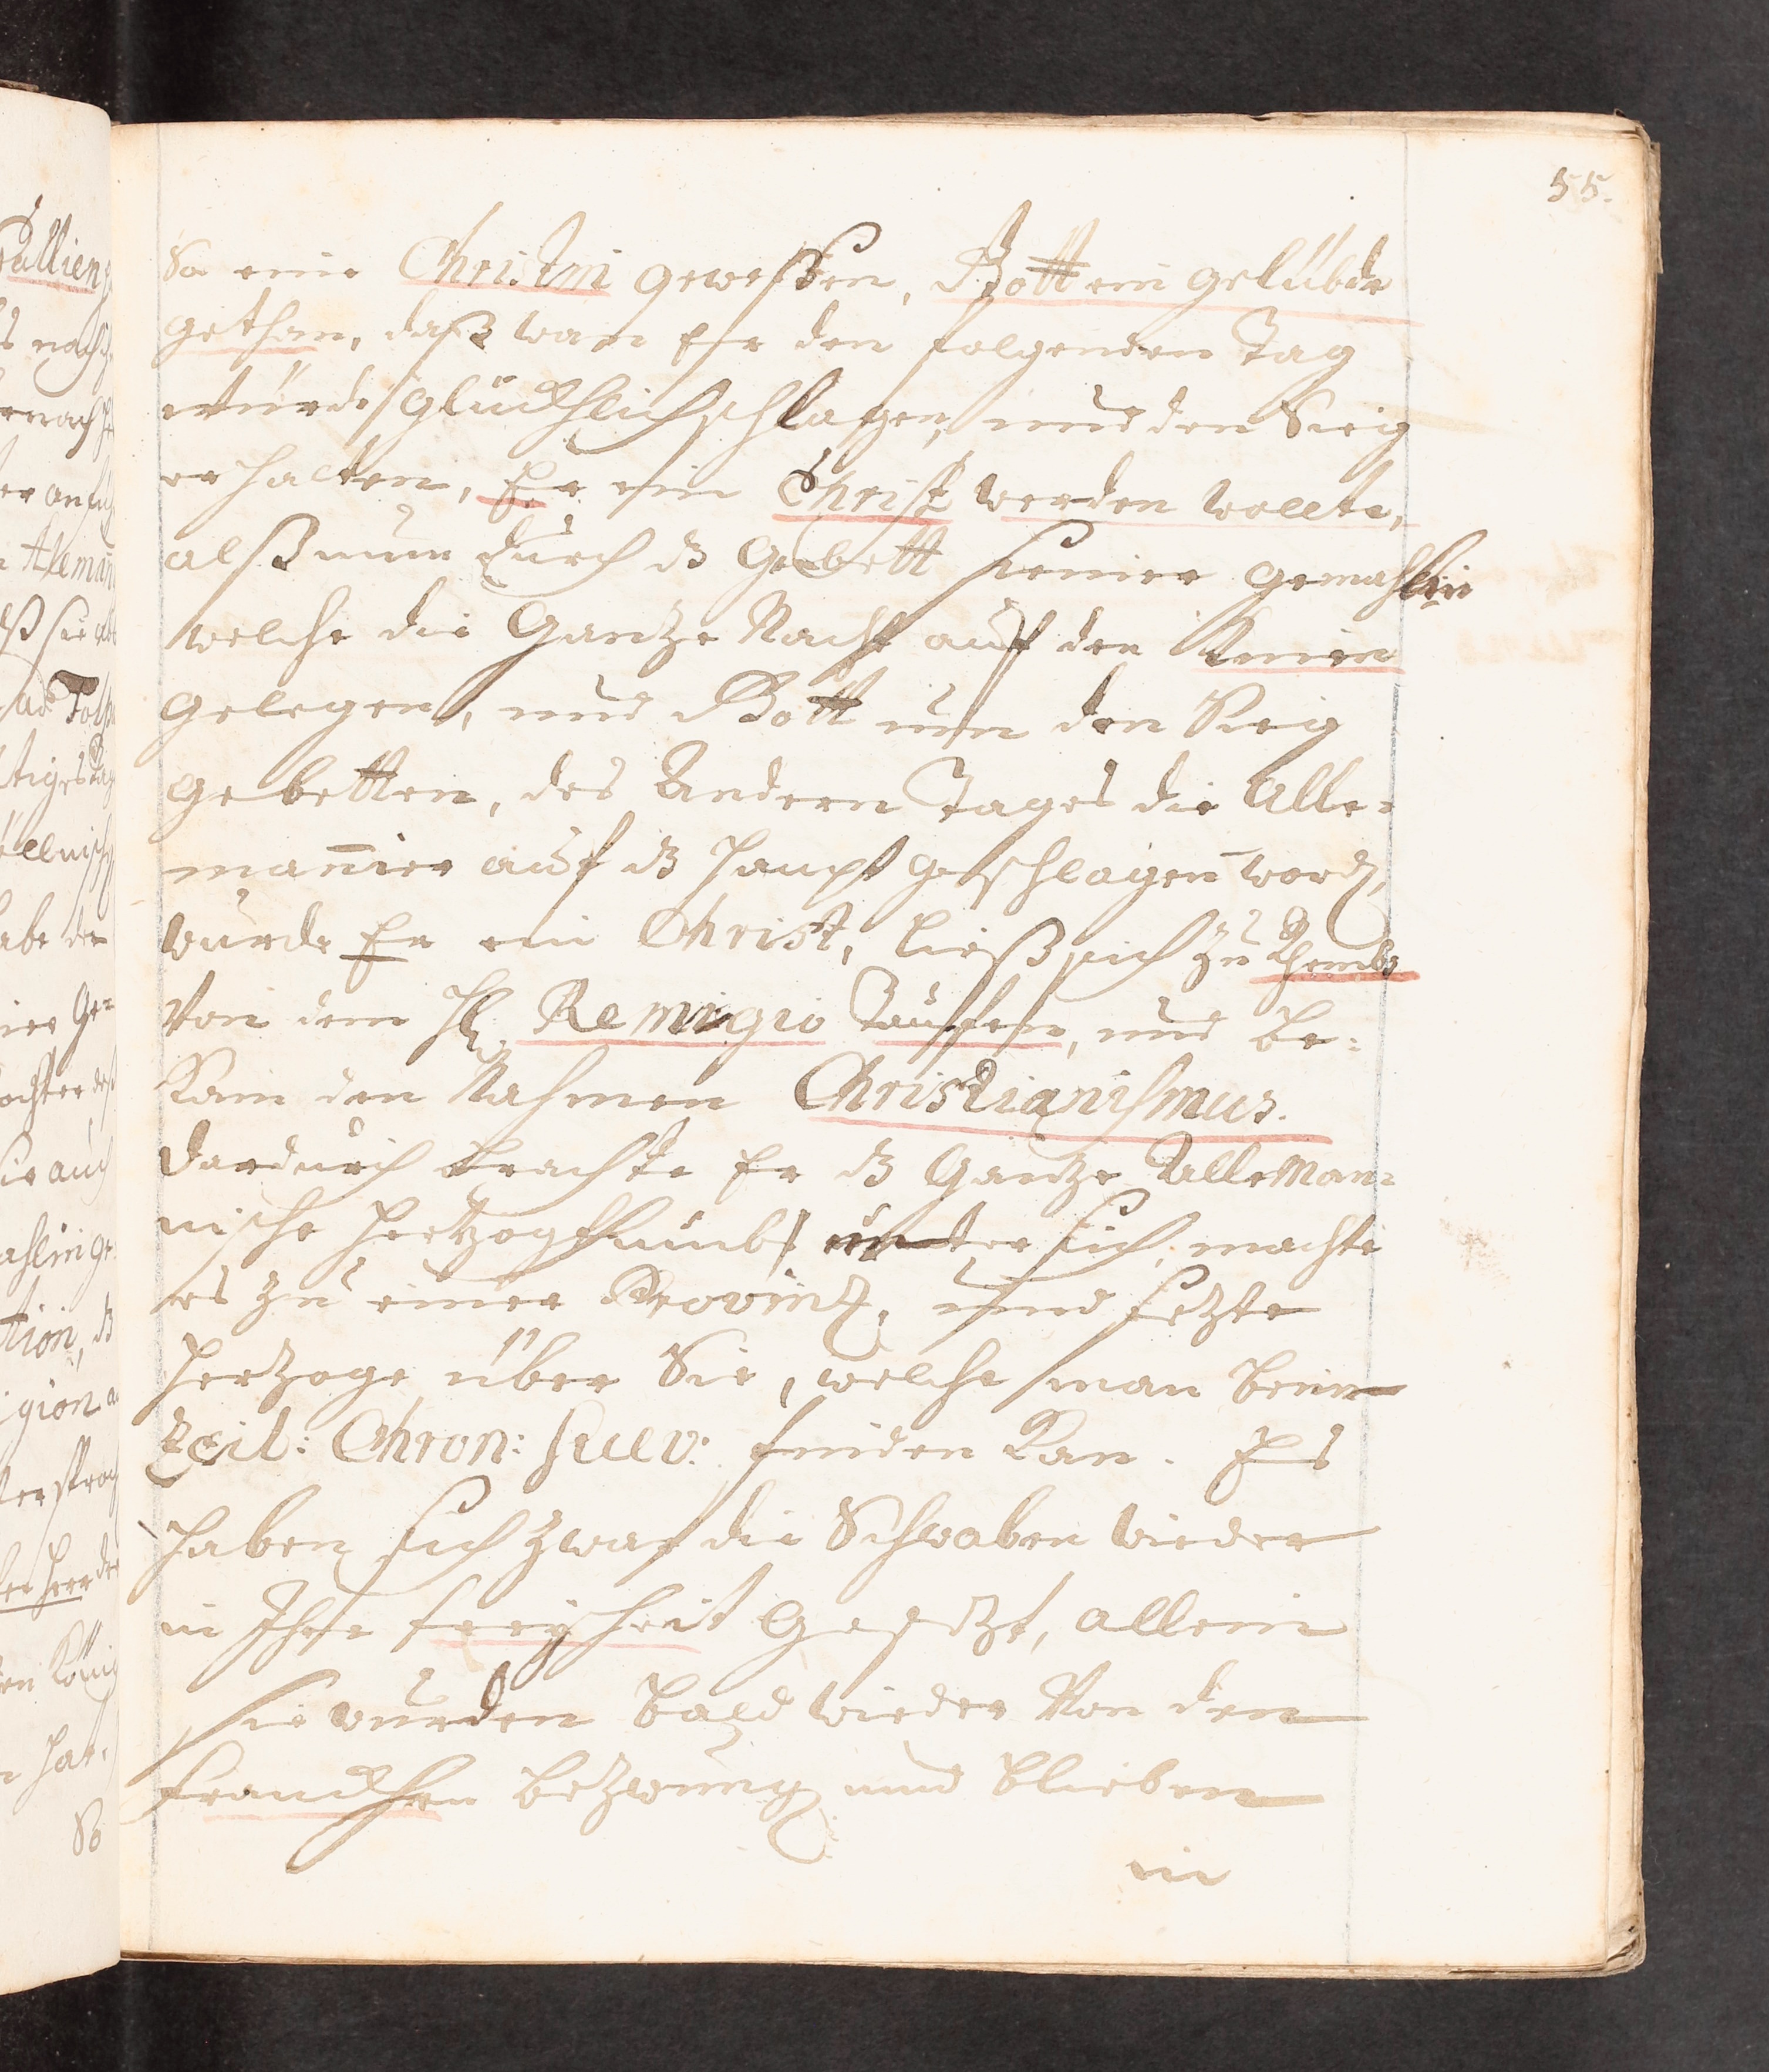 55.
So eine Christin geweßen, Gott ein gelübde
gethan, daß wan Er den folgenden Tag
würde glückhlich schlagen, und den Sieg
erhalten, Er ein Christ werden wollte,
alß nun durch dß Gebett seiner gemahlin
welche die Gantze Nacht auf den Knien
gelegen, und Gott um den Sieg
gebetten, des Andern Tages die Alle-
mannier auf dß Haupt geschlagen word,
wurde Er ein Christ, ließ sich zu Rheims
Von dem Hl. Remigio Tauffen, und be-
kam den Nahmen Christianismus.
Dardurch brachte Er dß Gantze Alleman-
nische Hertzogthumb unter sich, machte
es zu einer Provintz, und setzte
Hertzoge über Sie, welche man beim
Zeil: Chron: Suev: finden kan. Es
haben sich zwar die Schwaben wieder
in Ihre freyheit gesetzt, allein
sie wurden bald wieder Von den
Franckhen bezwung und blieben
in